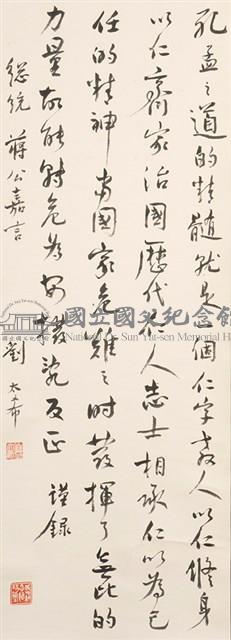 孔孟之道的精髓就是一個仁字教人以仁修身
以仁齊家治國歷代仁人志士相承仁以為己
任的精神當國家危難之時發揮了無比的
力量故能轉危為安撥亂反正 謹錄
總統 蔣公嘉言
劉太希
國立國父紀念館
National Dr. Sun Yat-sen Memorial H